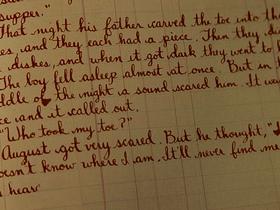 supper."
That night his father carved the toe into th
es, and they each had a piece. Then they di
dishes, and when it got dark they went to
The boy fell asleep almost at once. But in
ddle of the night a sound scared him. It wa
ce and it called out.
"Who took my toe?"
August got very scared. But he thought, "I
oesn't know where I am. It'll never find me
hear